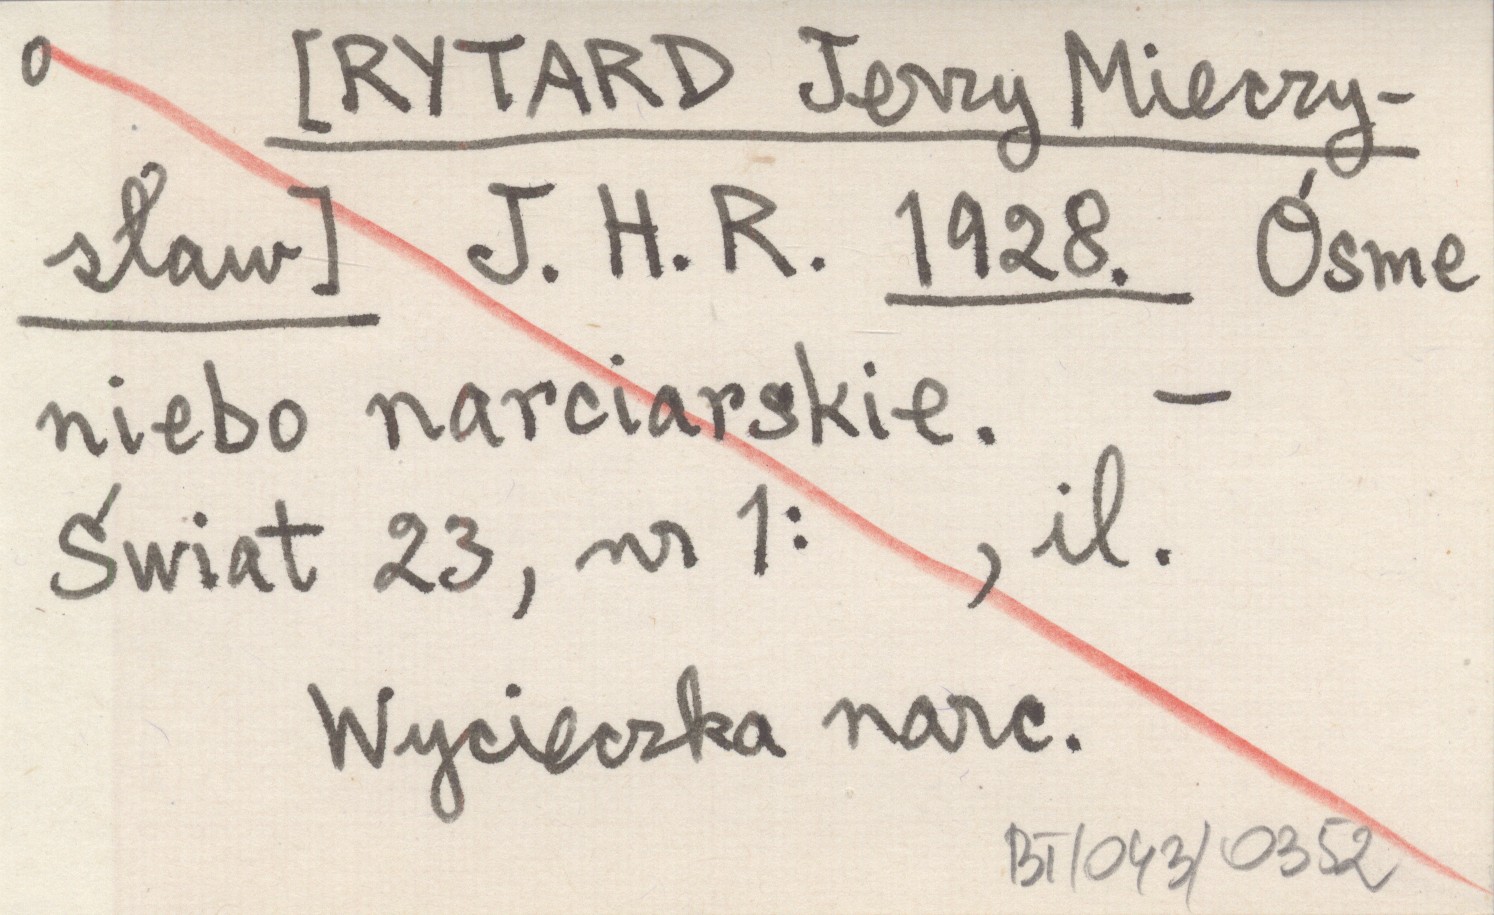 o [RYTARD Jerzy Mieczy-
sław] J. H. R. 1928. Ósme
niebo narciarskie. –
Świat 23, nr 1: , il.
Wycieczka narc.
BT/043/0352